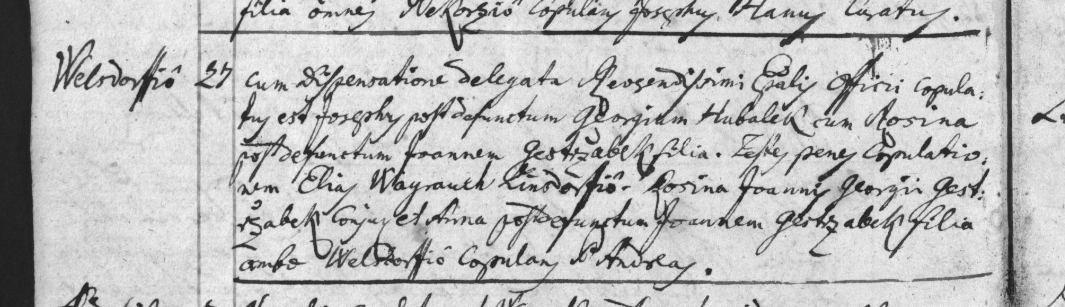 filia omnes Nekorziô Copulans Josephus Hanus Curatus.
Welsdorffiô 27 cum Dispensatione delegata Reverendissimi Epālis Officii copula:
tus est Josephus post defunctum Georgium Hubalek cum Rosina
post defunctum Joannem Gestrzabek filia. Testes penes Copulatio:
nem Elias Wayrauch Linsdorffiô. Rosina Joannis Georgii Gest:
rzabek Conjux et Anna post defunctum Joannem Gestrzabek filia
ambae Welsdorffiô Copulans P. Andreas.